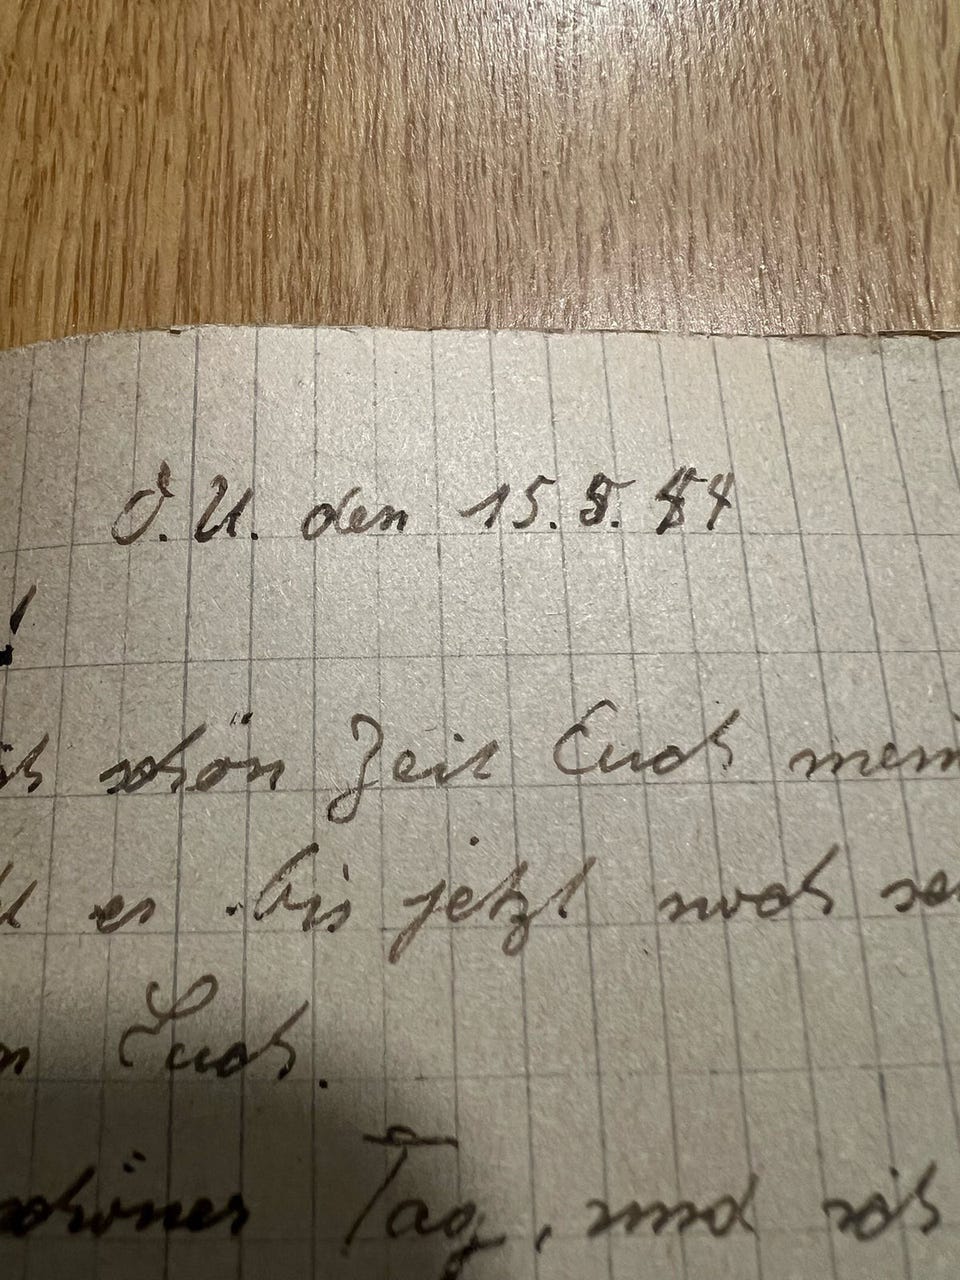 O.U. den 15.8. 44
!
ich schön Zeit Euch mein
es bis jetzt noch
Euch.
schöner Tag, und ich